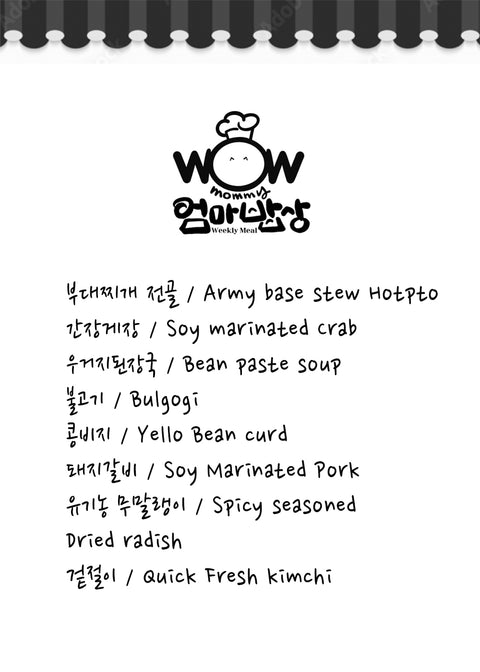 WOW
mommy
엄마밥상
Weekly Meal
부대찌개 전골 / Army base stew Hotpto
간장게장 / Soy marinated crab
우거지된장국 / Bean paste soup
불고기 / Bulgogi
콩비지 / Yello Bean curd
돼지갈비 / Soy Marinated Pork
유기농 무말랭이 / Spicy seasoned
Dried radish
겉절이 / Quick Fresh kimchi